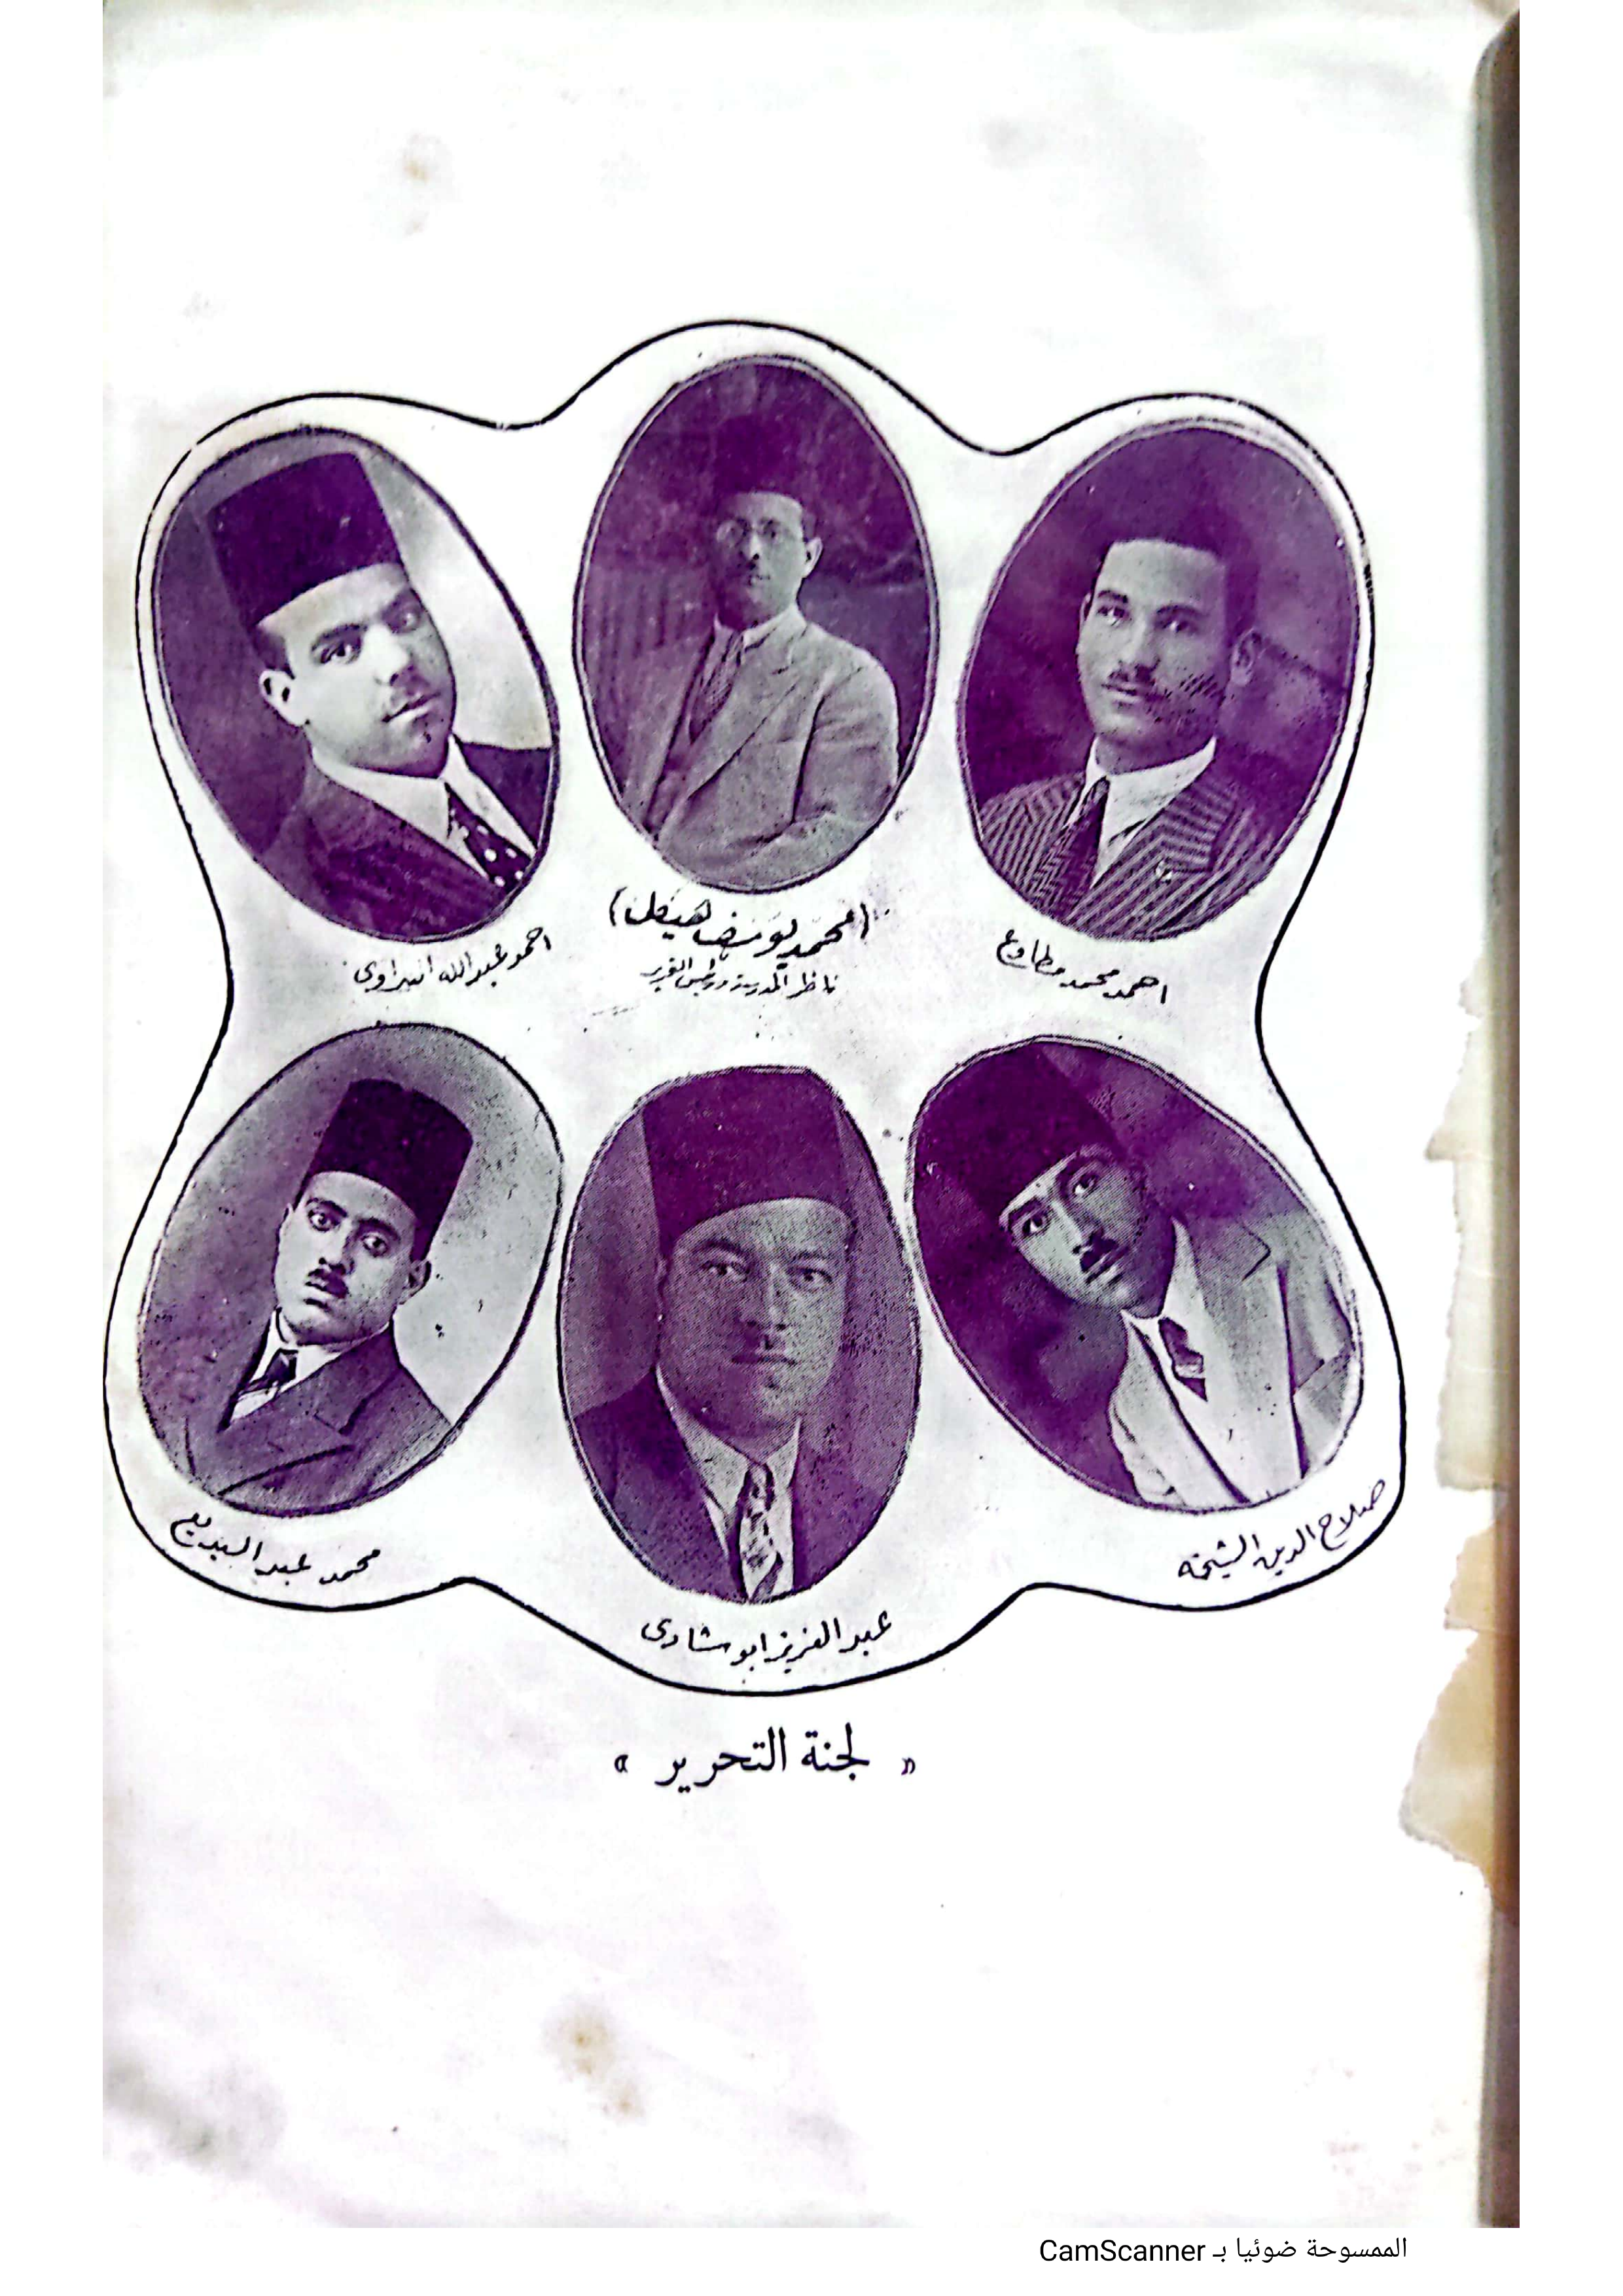 احمد محمد مطاوع
(محمد يوسف هيكل)
ناظر المدرسة ورئيس التحرير
احمد عبدالله
صلاح الدين الشيخه
عبد العزيز ابو شادى
محمد عبد البديع
« لجنة التحرير »
الممسوحة ضوئيا بـ CamScanner